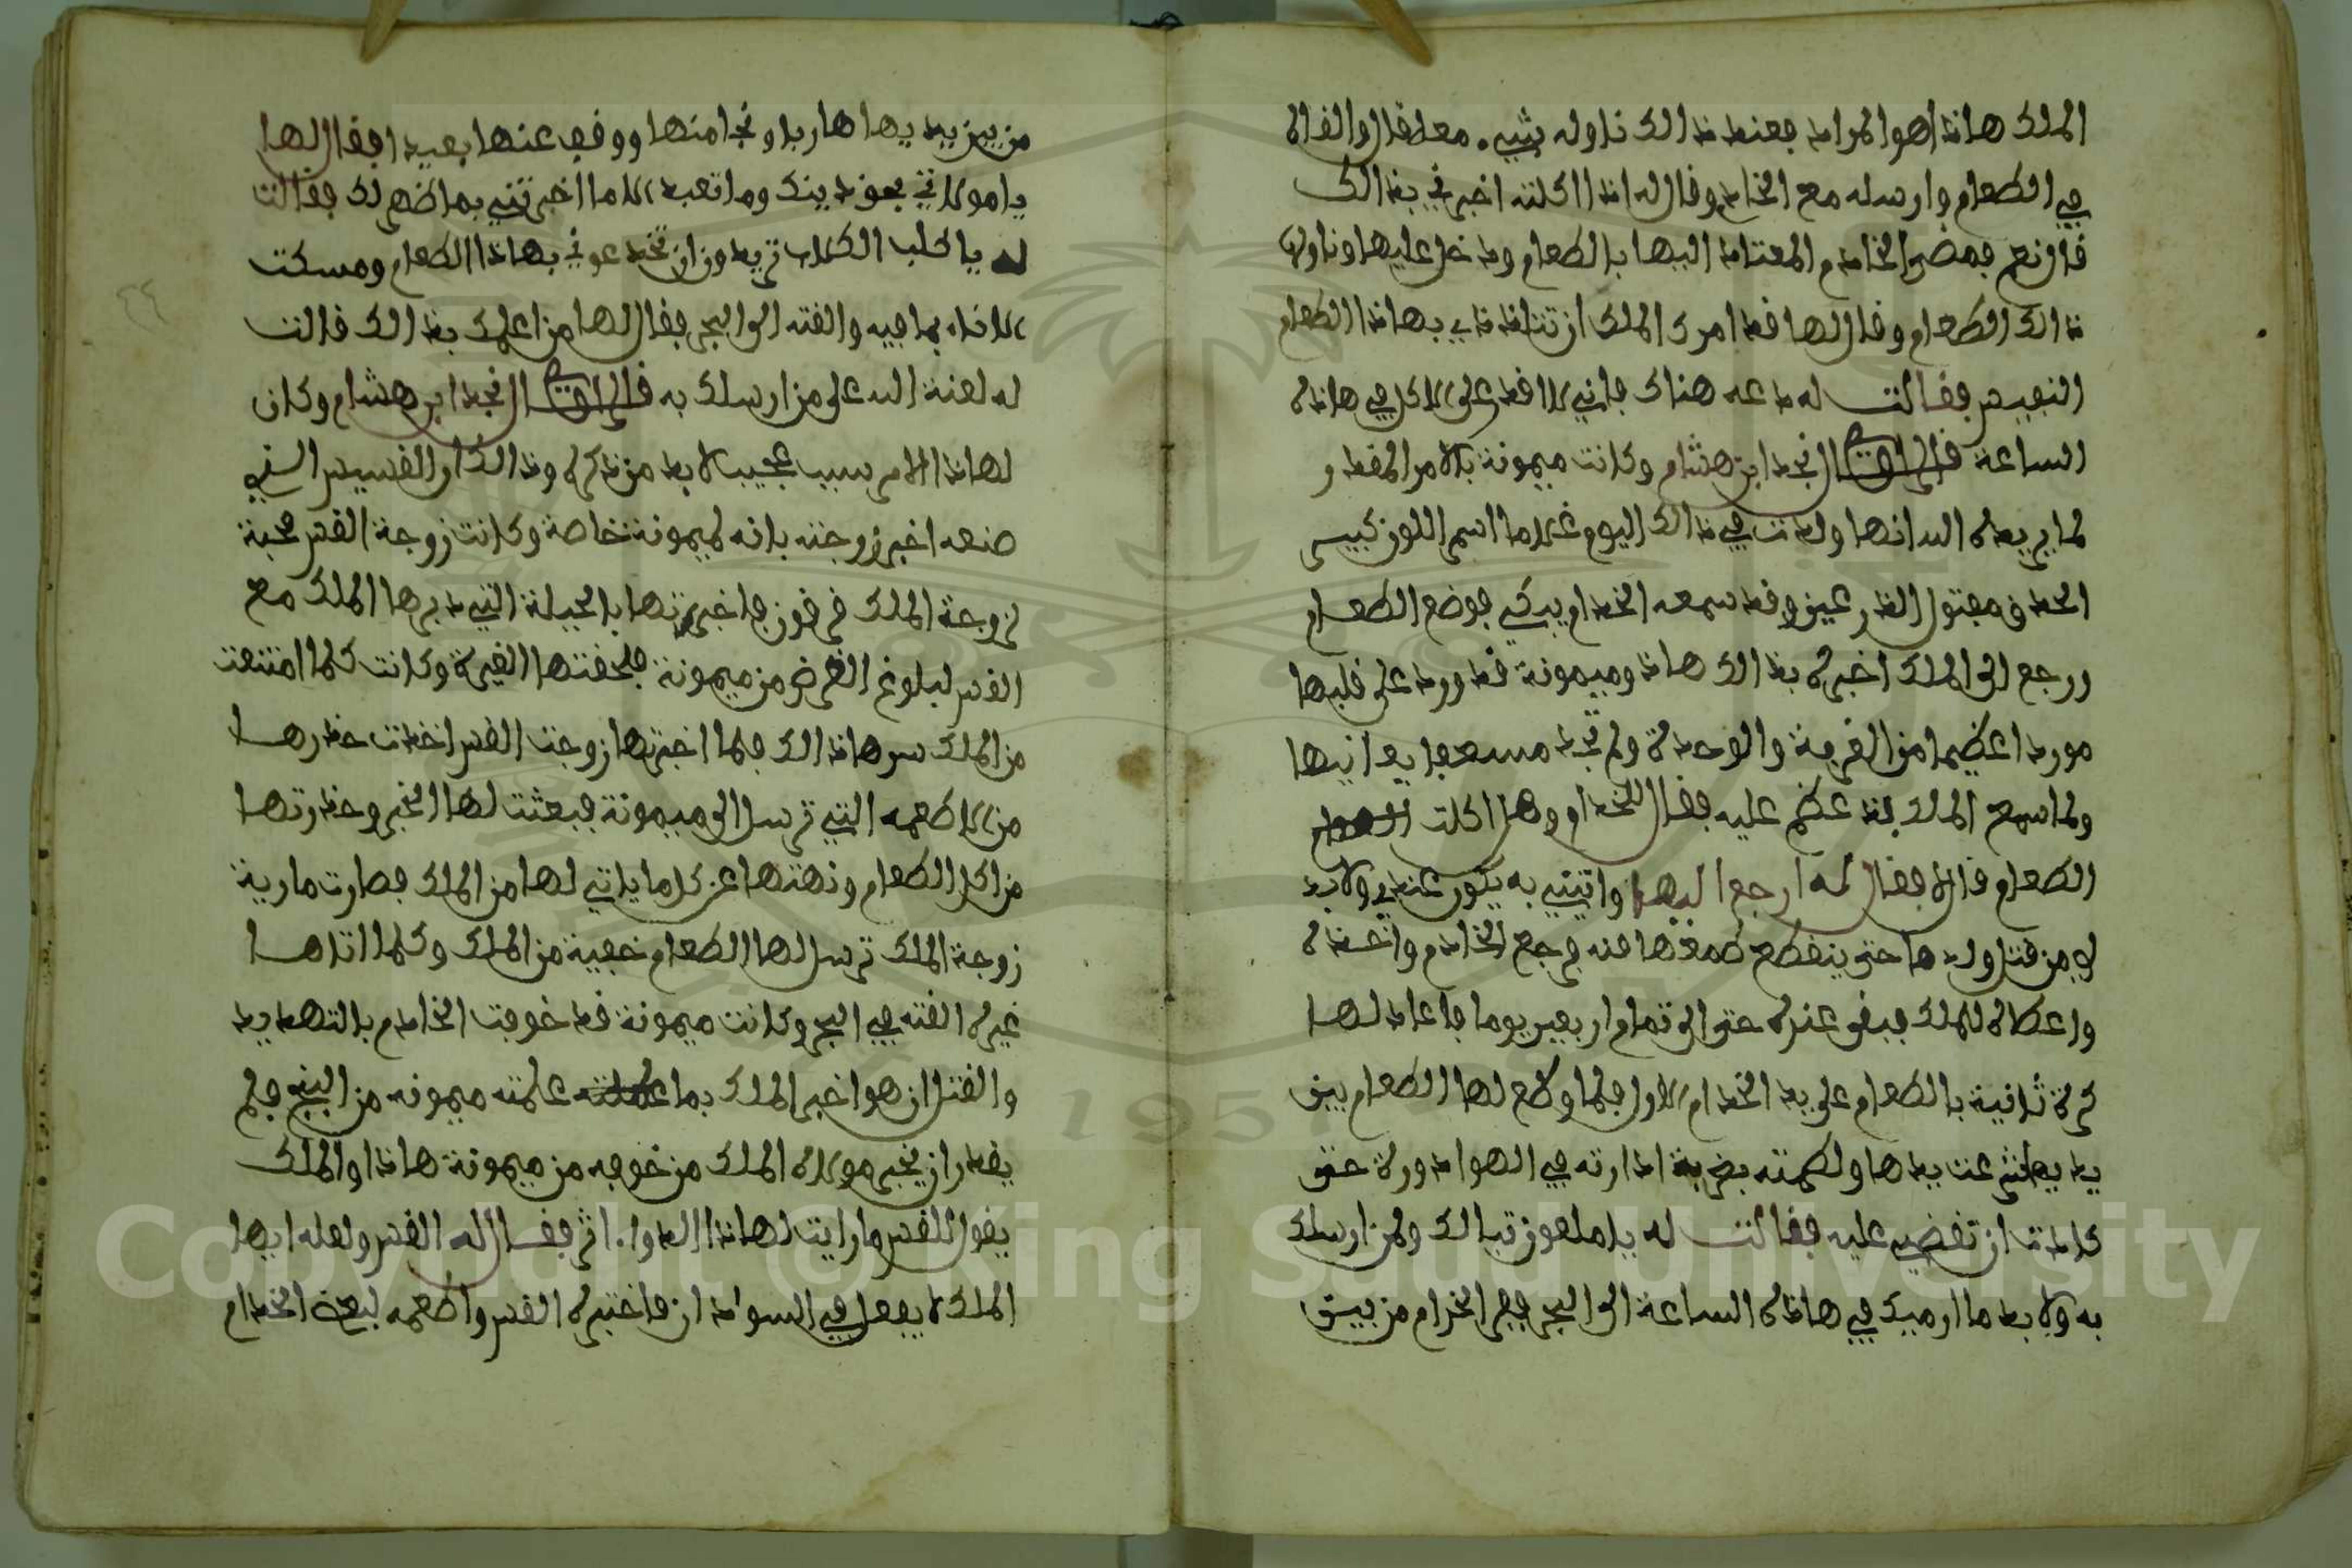 الملك هاذا هو المراد فعند ذالك ناوله شيء معلقا والقاه
في الطعام وارسله مع الخادم وقال له اذا اكلته اخبرني بذالك
قال نعم فمضى الخادم المعتاد اليها بالطعام ودخل عليها وناولها
ذالك الطعام وقال لها قد امرك الملك ان تتلذذي بهاذا الطعام
النفيس فقالت له دعه هناك فاني لا اقدر على الاكل في هاذه
الساعة قال الراوي نجد ابن هشام وكانت ميمونة بالامر المقدور
لما يريده الله انها ولدت في ذالك اليوم غلاما اسم اللون كبيس
الحدق مفتول الذرعين وقد سمعه الخدام يبكي فوضع الطعام
ورجع الى الملك اخبره بذالك هاذ وميمونة قد ورد على قلبها
موردا عظيما من الغربة والوحدة ولم تجد مسعفا يعانيها
ولما سمع الملك بذ عظم عليه فقال للخدام وهل اكلت
الطعام قال لا فقال له ارجع اليها واتيني به يكون عندي ولا بد
لي من قتل ولدها حتى ينقطع طمعها منه فرجع الخادم واخذه
واعطاه للملك فبقى عنده حتى الى تمام اربعين يوما فاعاد لها
كرة ثانية بالطعام على يد الخدام الاول فلما وضع لها الطعام بين
يديها نثرعت يدها ولكمته بضربة ادارته في الهواء دورة حتى
كادت ان تقضي عليه فقالت له يا ملعون تبالك ولمن ارسلك
به ولا بد ما ارميك في هاذه الساعة الى البحر ففر الخدام من بين
من بين يديها هاربا ونجا منها ووقف عنها بعيدا فقال لها
يا مولاتي بعود دينك وما تعبد الا ما اخبرتني بما ظهر لك فقالت
له يا كلب الكلاب تريدون ان تخدعوني بهاذا الطعام ومسكت
الاناء بما فيه والقته الى البحر فقال لها من اعلمك بذالك قالت
له لعنة الله على من ارسلك به قال الراوي نجد ابن هشام وكان
لهاذا الامر سبب عجيب لا بد من ذكره وذالك ان القسيس الذي
صنعه اخبر زوجته بانه لميمونة خاصة وكانت زوجة القس محبة
لزوجة الملك قرقون فاخبرتها بالحيلة التي دبرها الملك مع
القس لبلوغ الغرض من ميمونة فلحقتها الغيرة وكانت كلما امتنعت
من الملك سرها ذالك فلما اخبرتها زوجت القس اخذت حذرها
من الاطعمه التي ترسل الى ميمونة فبعثت لها الخبر وحذرتها
من اكل الطعام ونهتها عن كل ما ياتي لها من الملك فصارت مارية
زوجة الملك ترسل لها الطعام خفية من الملك وكلما اتاها
غيره القته في البحر وكانت ميمونة قد خوفت الخادم بالتهديد
والقتل ان هو اخبر الملك بما علمته ميمونه من البنج فلم
يقدر ان يخبر مولاه الملك من خوفه من ميمونة هاذا والملك
يقول للقس ما رايت لهاذا الدواء اثر فقال له القس ولعله ايها
الملك لا يفعل في السودان فاختبره القس واطعمه لبعض الخدام